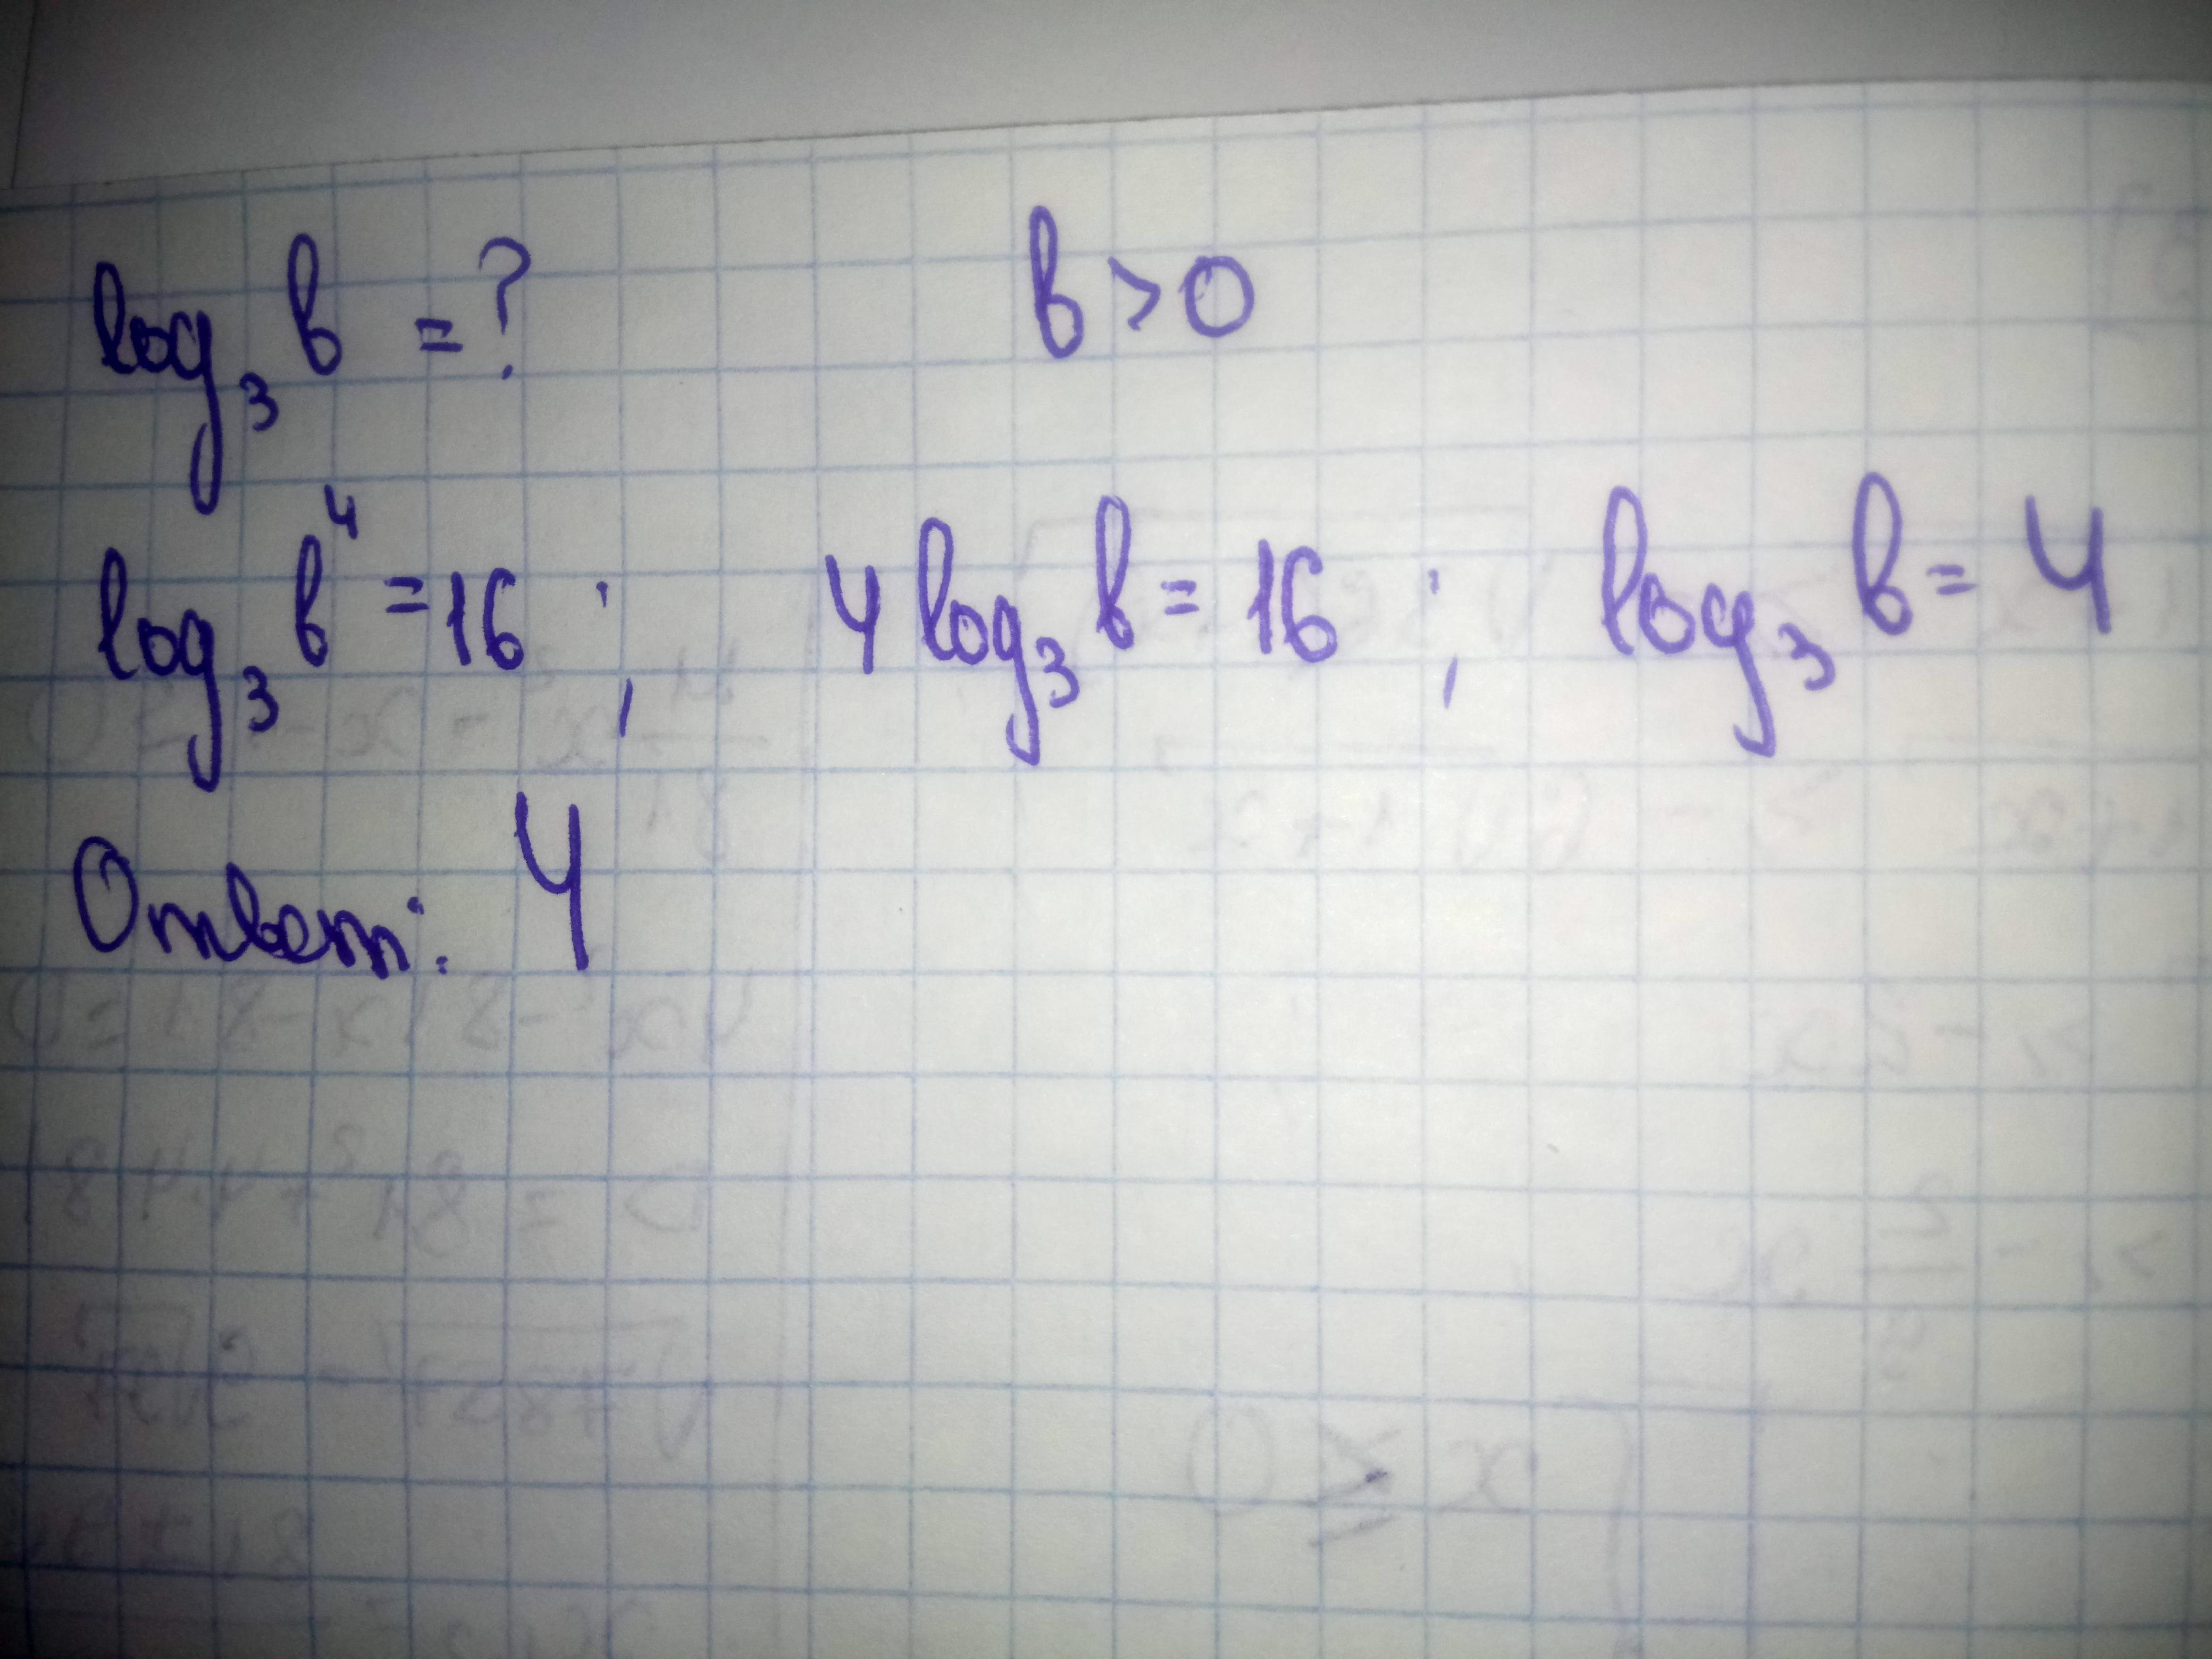 log₃ b = ? b > 0
log₃ b⁴ = 16 ; 4 log₃ b = 16 ; log₃ b = 4
Ответ: 4